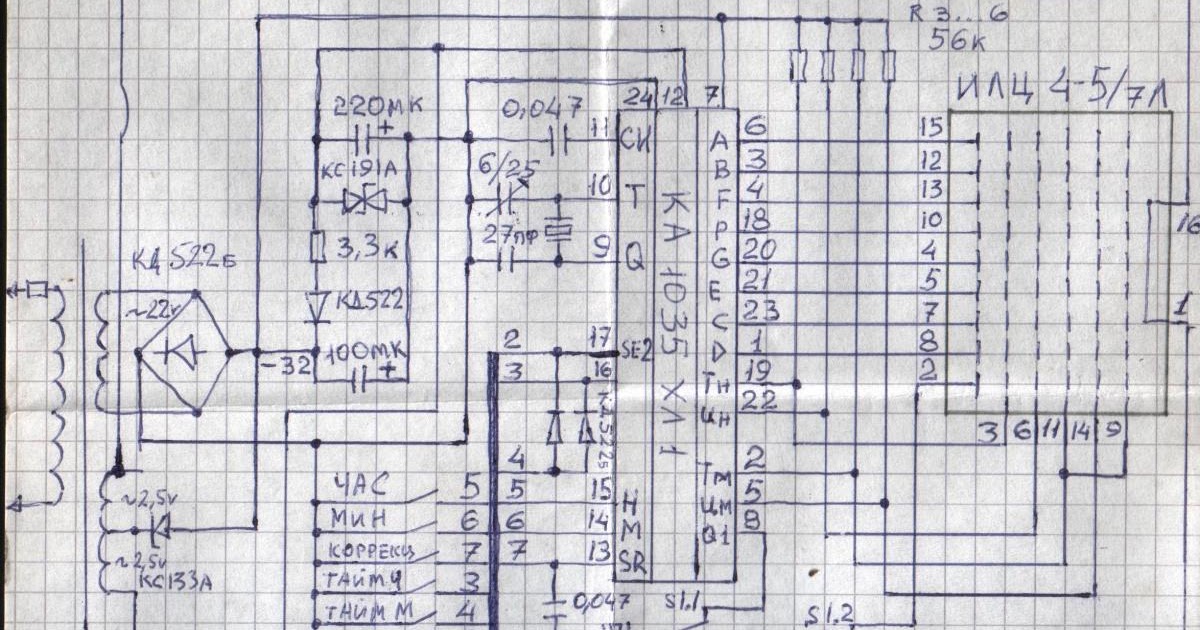 R 3...6
56к
ИЛЦ 4-5/7Л
220МК
+
0,047
11
24
12
7
СИ
А
6
15
КС191А
6/25
10
Т
В
3
12
F
4
13
27пф
9
Q
P
18
10
16
3,3к
G
20
4
КД522Б
~22v
КД522
E
21
5
C
23
7
1
КА1035ХЛ1
-32
100МК
+
2
17
SE2
D
1
8
3
16
Тн
19
2
КД522Б
Цн
22
3
6
11
14
9
4
Тм
2
ЧАС
5
5
15
Н
Цм
5
~2,5v
МИН
6
6
14
М
Q1
8
КОРРЕКЦ
7
7
13
SR
~2,5v
КС133А
ТАЙМ Ч
3
ТАЙМ М
4
0,047
S1.1
S1.2